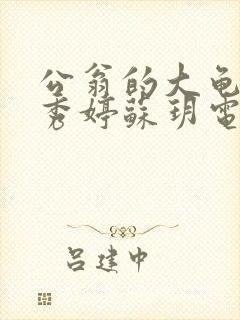 公翁的大龟
秀婷蘇玥電
吕建中